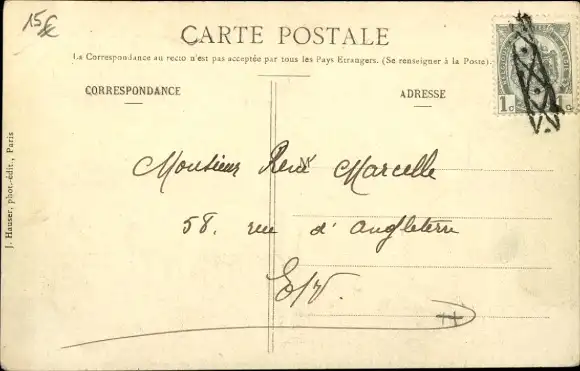 15€
CARTE POSTALE
La Correspondance au recto n'est pas acceptée par tous les Pays Etrangers. (Se renseigner à la Poste).
CORRESPONDANCE
ADRESSE
1c
J. Hauser, phot.-édit., Paris
Monsieur René Marcelle
58. rue d'Angleterre
E/V.